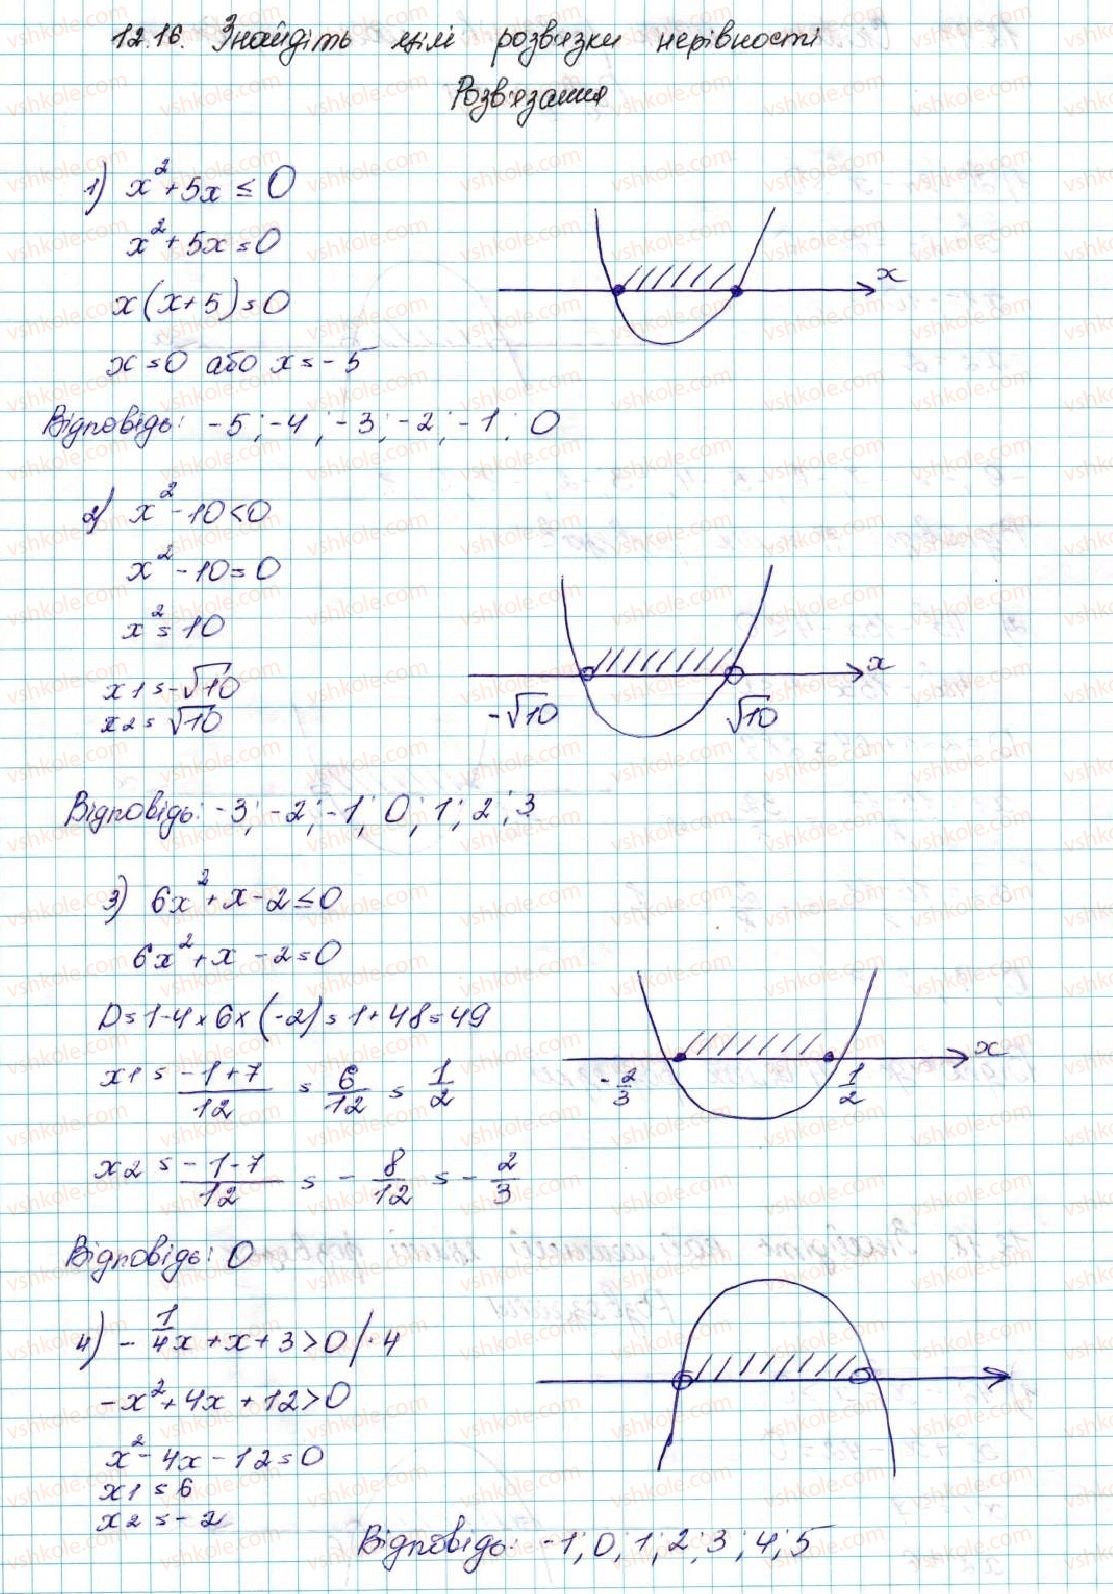 12.16. Знайдіть цілі розв'язки нерівності
Розв'язання
1) x² + 5x ≤ 0
x² + 5x = 0
x(x+5) = 0
x = 0 або x = -5
x
Відповідь: -5; -4; -3; -2; -1; 0
2) x² - 10 < 0
x² - 10 = 0
x² = 10
x1 = -√10
x2 = √10
x
-√10 √10
Відповідь: -3; -2; -1; 0; 1; 2; 3
3) 6x² + x - 2 ≤ 0
6x² + x - 2 = 0
D = 1-4×6×(-2) = 1+48 = 49
x1 = (-1+7)/12 = 6/12 = 1/2
x2 = (-1-7)/12 = -8/12 = -2/3
x
-2/3 1/2
Відповідь: 0
4) -1/4x + x + 3 > 0 /·4
-x² + 4x + 12 > 0
x² - 4x - 12 = 0
x1 = 6
x2 = -2
Відповідь: -1; 0; 1; 2; 3; 4; 5
vshkole.com